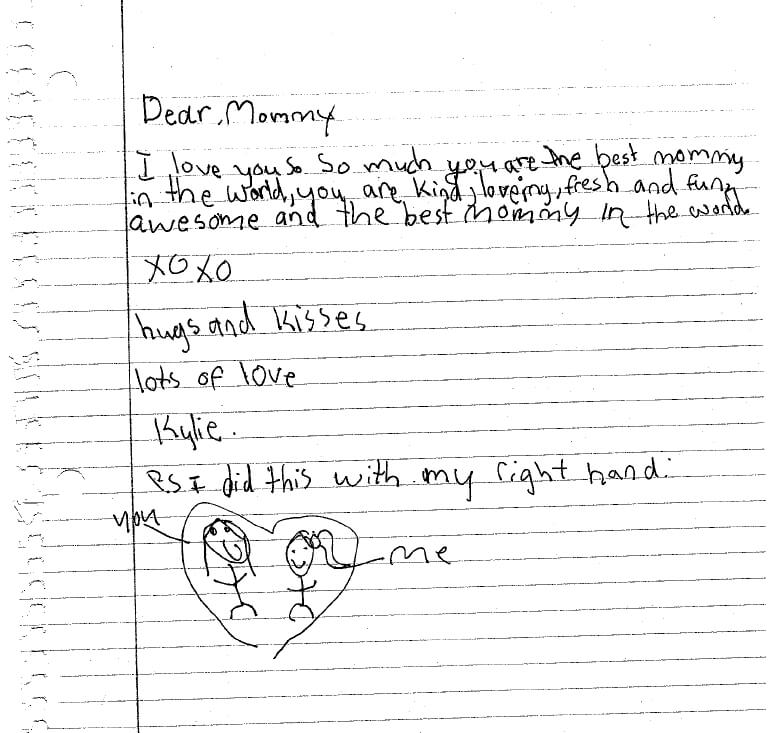 Dear, Mommy
I love you so so much you are the best mommy
in the world, you are kind, loveing, fresh and fun,
awesome and the best mommy in the world.
XOXO
hugs and kisses
lots of love
Kylie.
P.S I did this with my right hand:
you
me